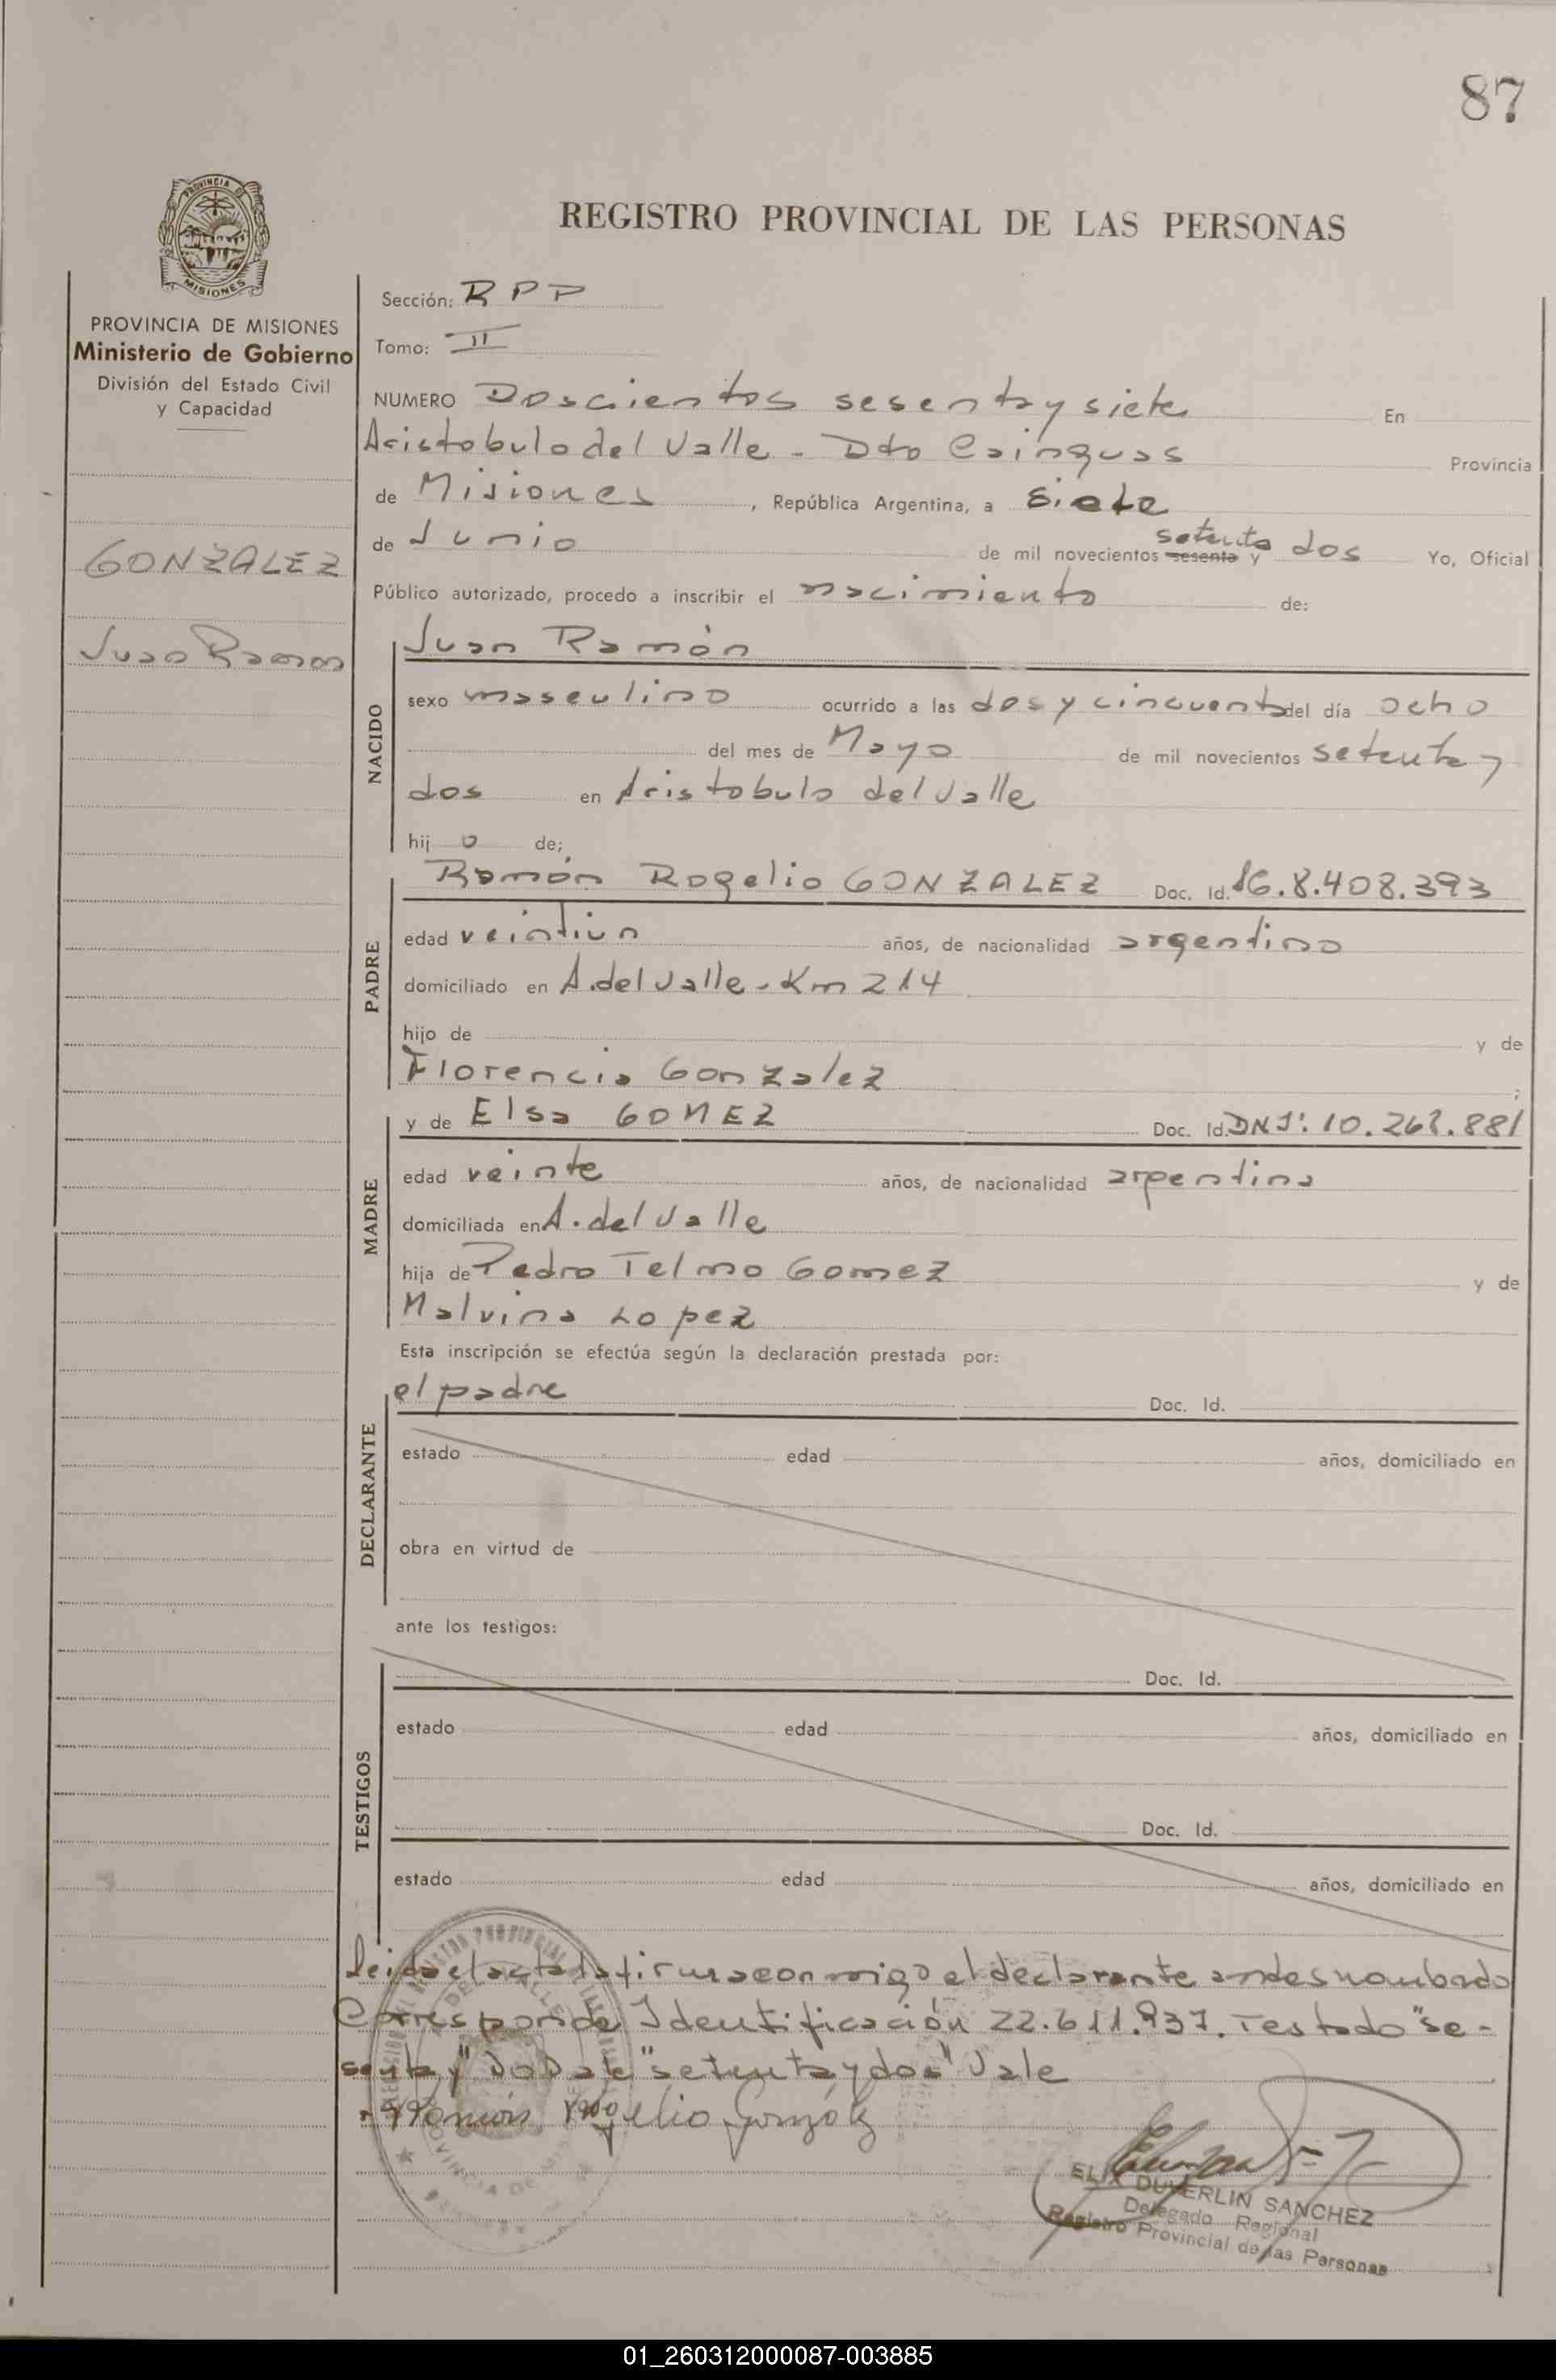 87
PROVINCIA DE
MISIONES
REGISTRO PROVINCIAL DE LAS PERSONAS
PROVINCIA DE MISIONES
Ministerio de Gobierno
División del Estado Civil
y Capacidad
GONZALEZ
Juan Ramon
Sección: RPP
Tomo: II
NUMERO Doscientos sesenta y siete En
Aristobulo del Valle - Dto Cainguas Provincia
de Misiones, República Argentina, a siete
setenta
de Junio de mil novecientos sesenta y dos Yo, Oficial
Público autorizado, procedo a inscribir el nacimiento de:
NACIDO
Juan Ramón
sexo masculino ocurrido a las dos y cincuenta del día ocho
del mes de Mayo de mil novecientos setenta y
dos en Aristobulo del Valle
hij o de;
PADRE
Ramón Rogelio GONZALEZ Doc. Id. 8.408.393
edad veintiun años, de nacionalidad argentino
domiciliado en A. del Valle - Km 214
hijo de y de
Florencia Gonzalez ;
MADRE
y de Elsa GOMEZ Doc. Id. DNI: 10.262.881
edad veinte años, de nacionalidad argentina
domiciliada en A. del Valle
hija de Pedro Telmo Gomez y de
Malvina Lopez
Esta inscripción se efectúa según la declaración prestada por:
DECLARANTE
el padre Doc. Id.
estado edad años, domiciliado en
obra en virtud de
ante los testigos:
TESTIGOS
Doc. Id.
estado edad años, domiciliado en
Doc. Id.
estado edad años, domiciliado en
Leida el acta la firma conmigo el declarante antes nombrado
Corresponde Identificación 22.611.937. Testado "se-
senta y" "setenta y dos" Vale
Ramón Rogelio González
DUVERLIN SANCHEZ
Delegado Regional
Registro Provincial de las Personas
01_260312000087-003885